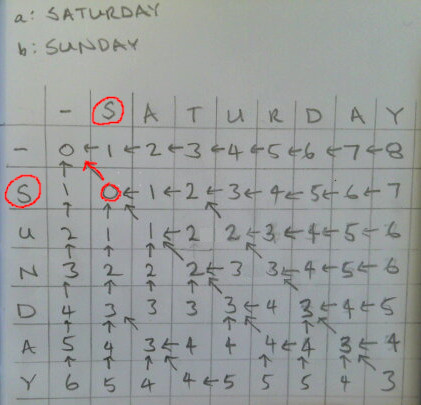 a: SATURDAY
b: SUNDAY
- S A T U R D A Y
- 0 ← 1 ← 2 ← 3 ← 4 ← 5 ← 6 ← 7 ← 8
S 1 0 ← 1 ← 2 ← 3 ← 4 ← 5 ← 6 ← 7
U 2 1 1 ← 2 2 ← 3 ← 4 ← 5 ← 6
N 3 2 2 2 ← 3 3 ← 4 ← 5 ← 6
D 4 3 3 3 3 ← 4 3 ← 4 ← 5
A 5 4 3 ← 4 4 4 ← 4 3 ← 4
Y 6 5 4 4 ← 5 5 5 4 3